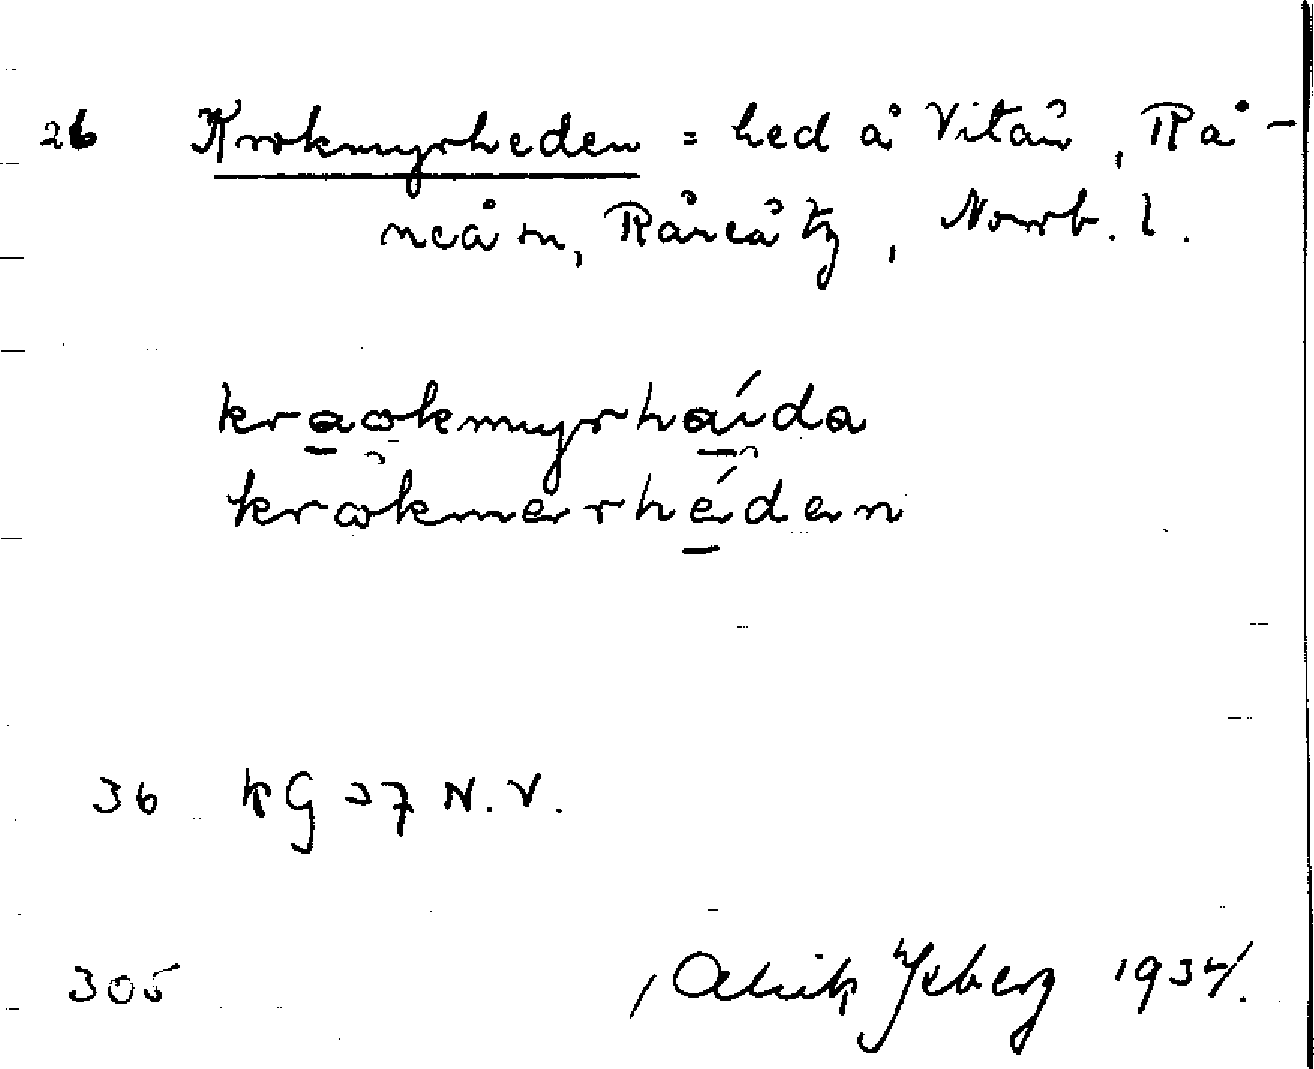 26 Krokmyrheden = hed å Vitån, Rå-
neå sn, Råneå tg, Norrb. l.
kraokmyrhaida
krokmerheden
36 KG 27 N.V.
305 /Alrik Ysberg 1934/.